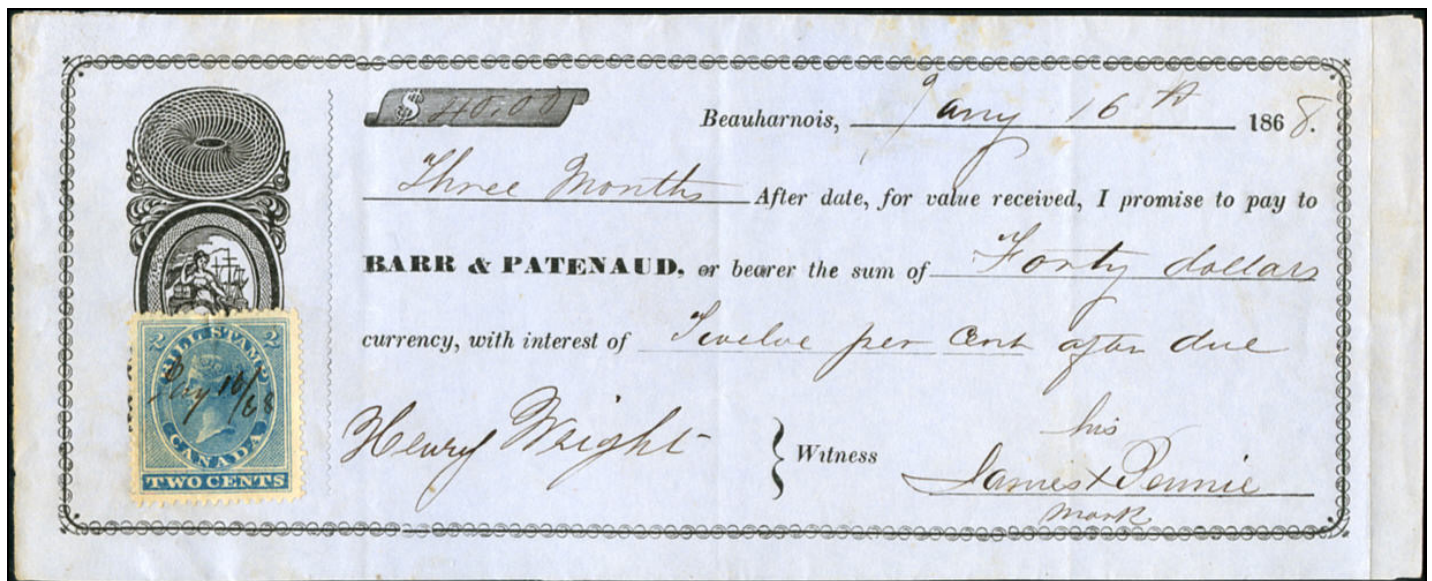 $ 40.00
Beauharnois, Jany 16th 1868.
Three Months After date, for value received, I promise to pay to
BARR & PATENAUD, or bearer the sum of Forty dollars
currency, with interest of Twelve per Cent after due
Henry Wright } Witness
his
James X Pennie
mark
2 BILL STAMP 2
Jay 16/68
CANADA
TWO CENTS